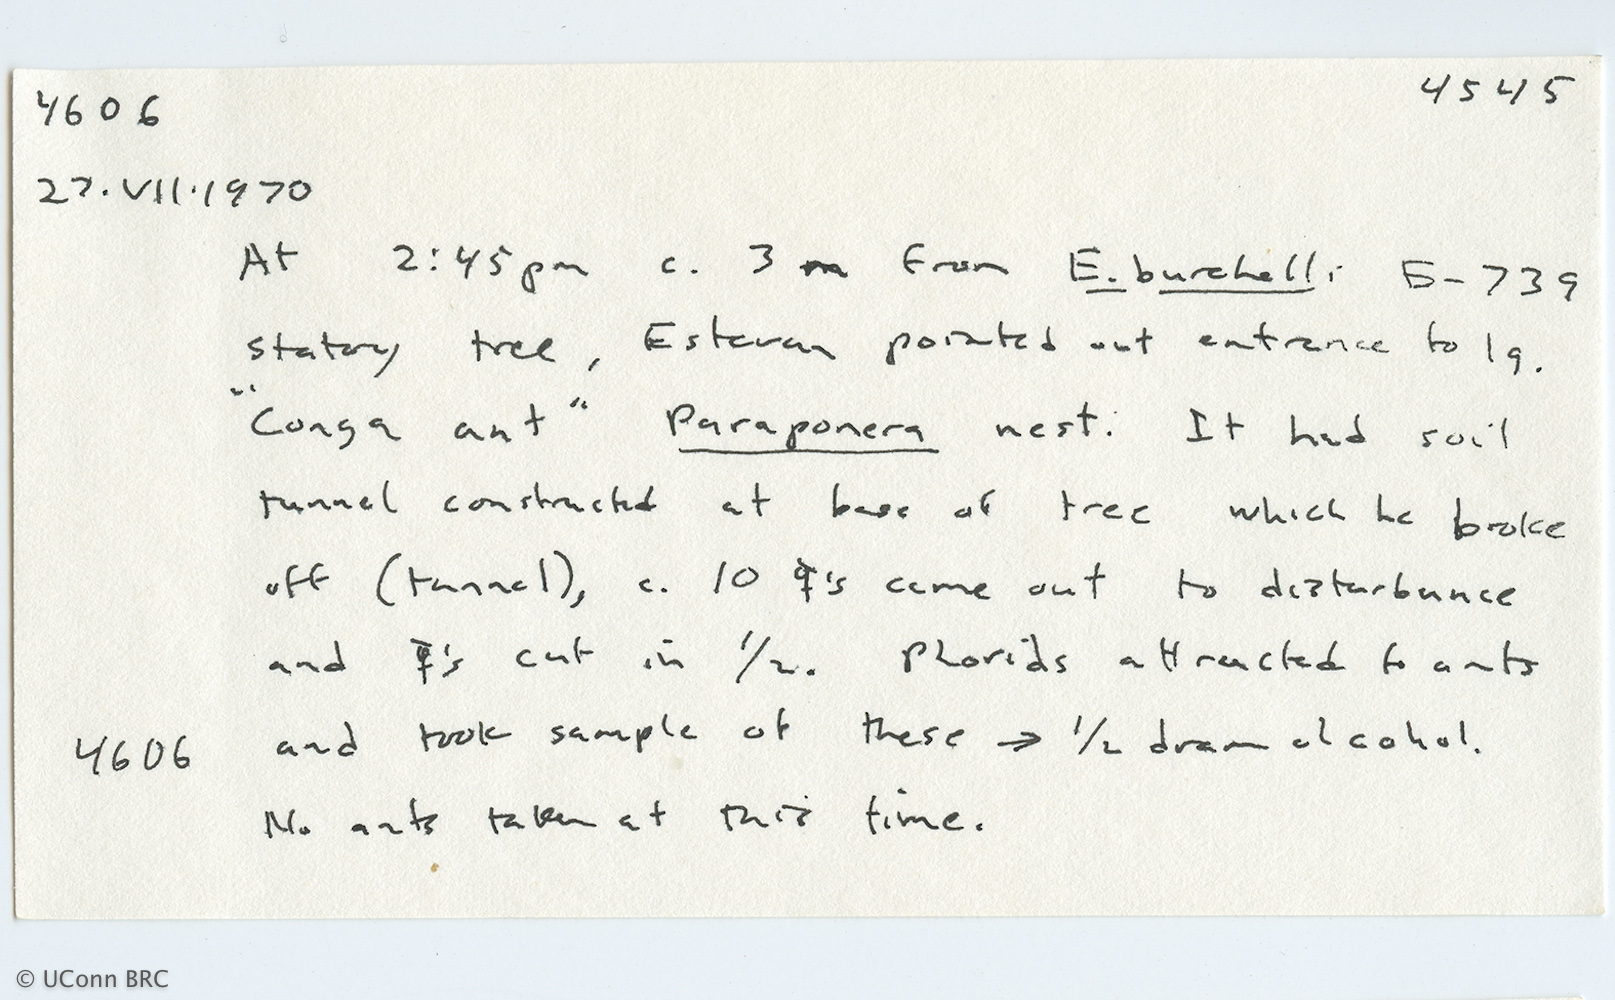 4606 4545
27.VII.1970
At 2:45pm c. 3 m from E. burchelli B-739
statary tree, Estevan pointed out entrance to lg.
"Conga ant" Paraponera nest. It had soil
tunnel constructed at base of tree which he broke
off (tunnel), c. 10 ☿'s came out to disturbance
and ☿'s cut in 1/2. Phorids attracted to ants
4606 and took sample of these → 1/2 dram alcohol.
No ants taken at this time.
© UConn BRC